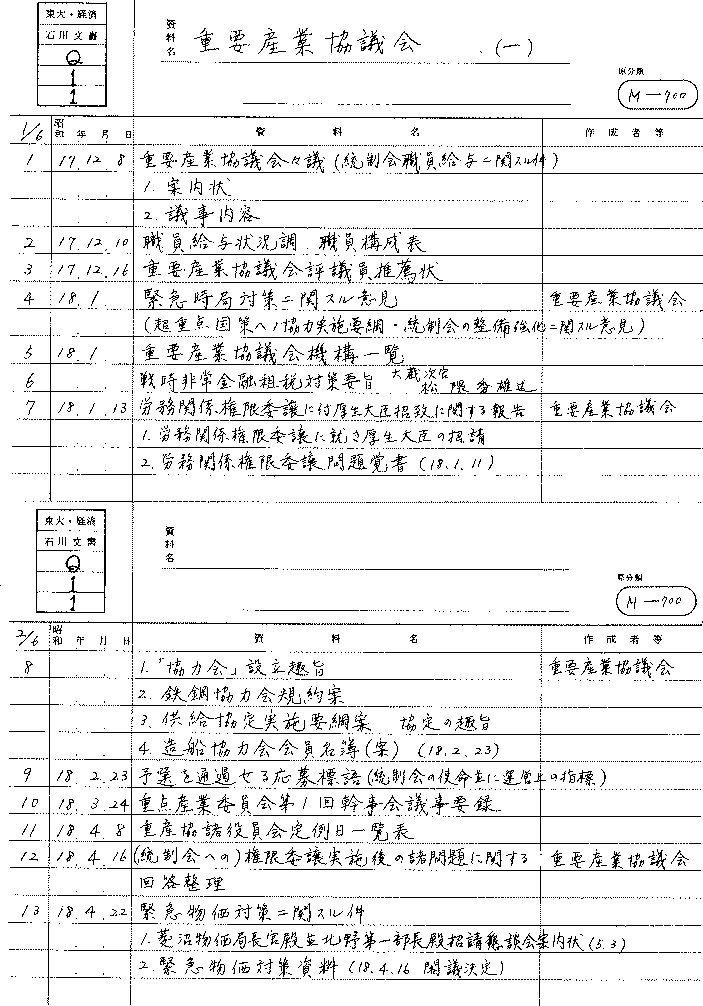 東大・経済
石川文書
Q
1
1
資料名 重要産業協議会 (一)
原分類
M-700
1/6 昭和 年 月 日 資料名 作成者等
1 17.12.8 重要産業協議会々議(統制会職員給与ニ関スル件)
1. 案内状
2. 議事内容
2 17.12.10 職員給与状況調 職員構成表
3 17.12.16 重要産業協議会評議員推薦状
4 18.1 緊急時局対策ニ関スル意見 重要産業協議会
(超重点国策ヘノ協力実施要綱・統制会の整備強化ニ関スル意見)
5 18.1 重要産業協議会機構一覧
6 戦時非常金融租税対策要旨 大蔵次官 松隈秀雄述
7 18.1.13 労務関係権限委譲に付厚生大臣招致に関する報告 重要産業協議会
1. 労務関係権限委譲に就き厚生大臣の招請
2. 労務関係権限委譲問題覚書 (18.1.11)
東大・経済
石川文書
Q
1
1
資料名
原分類
M-700
2/6 昭和 年 月 日 資料名 作成者等
8 1.「協力会」設立趣旨 重要産業協議会
2. 鉄鋼協力会規約案
3. 供給協定実施要綱案 協定の趣旨
4. 造船協力会会員名簿(案) (18.2.23)
9 18.2.23 予選を通過せる応募標語(統制会の使命並に運営上の指標)
10 18.3.24 重点産業委員会第1回幹事会議事要録
11 18.4.8 重産協諸役員会定例日一覧表
12 18.4.16 (統制会への)権限委譲実施後の諸問題に関する 重要産業協議会
回答整理
13 18.4.22 緊急物価対策ニ関スル件
1. 菱沼物価局長官殿並北野第一部長殿招請懇談会案内状(5.3)
2. 緊急物価対策資料 (18.4.16 閣議決定)